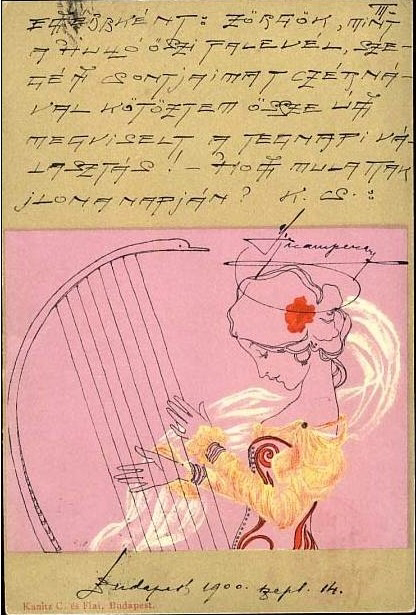 III.
EGÉBKÉNT: ZÖRGÖK, MINT
A HULLÓ ŐSZI FALEVÉL, SZE-
GÉNY CSONTJAIMAT CZÉRNÁ-
VAL KÖTÖZTEM ÖSSZE ÚGY
MEGVISELT A TEGNAPI VÁ-
LASZTÁS! – HOGY MULATTAK
ILONA NAPJÁN? K. CS.:
Budapest 1900. szept. 14.
Kanitz C. és Fiai, Budapest.